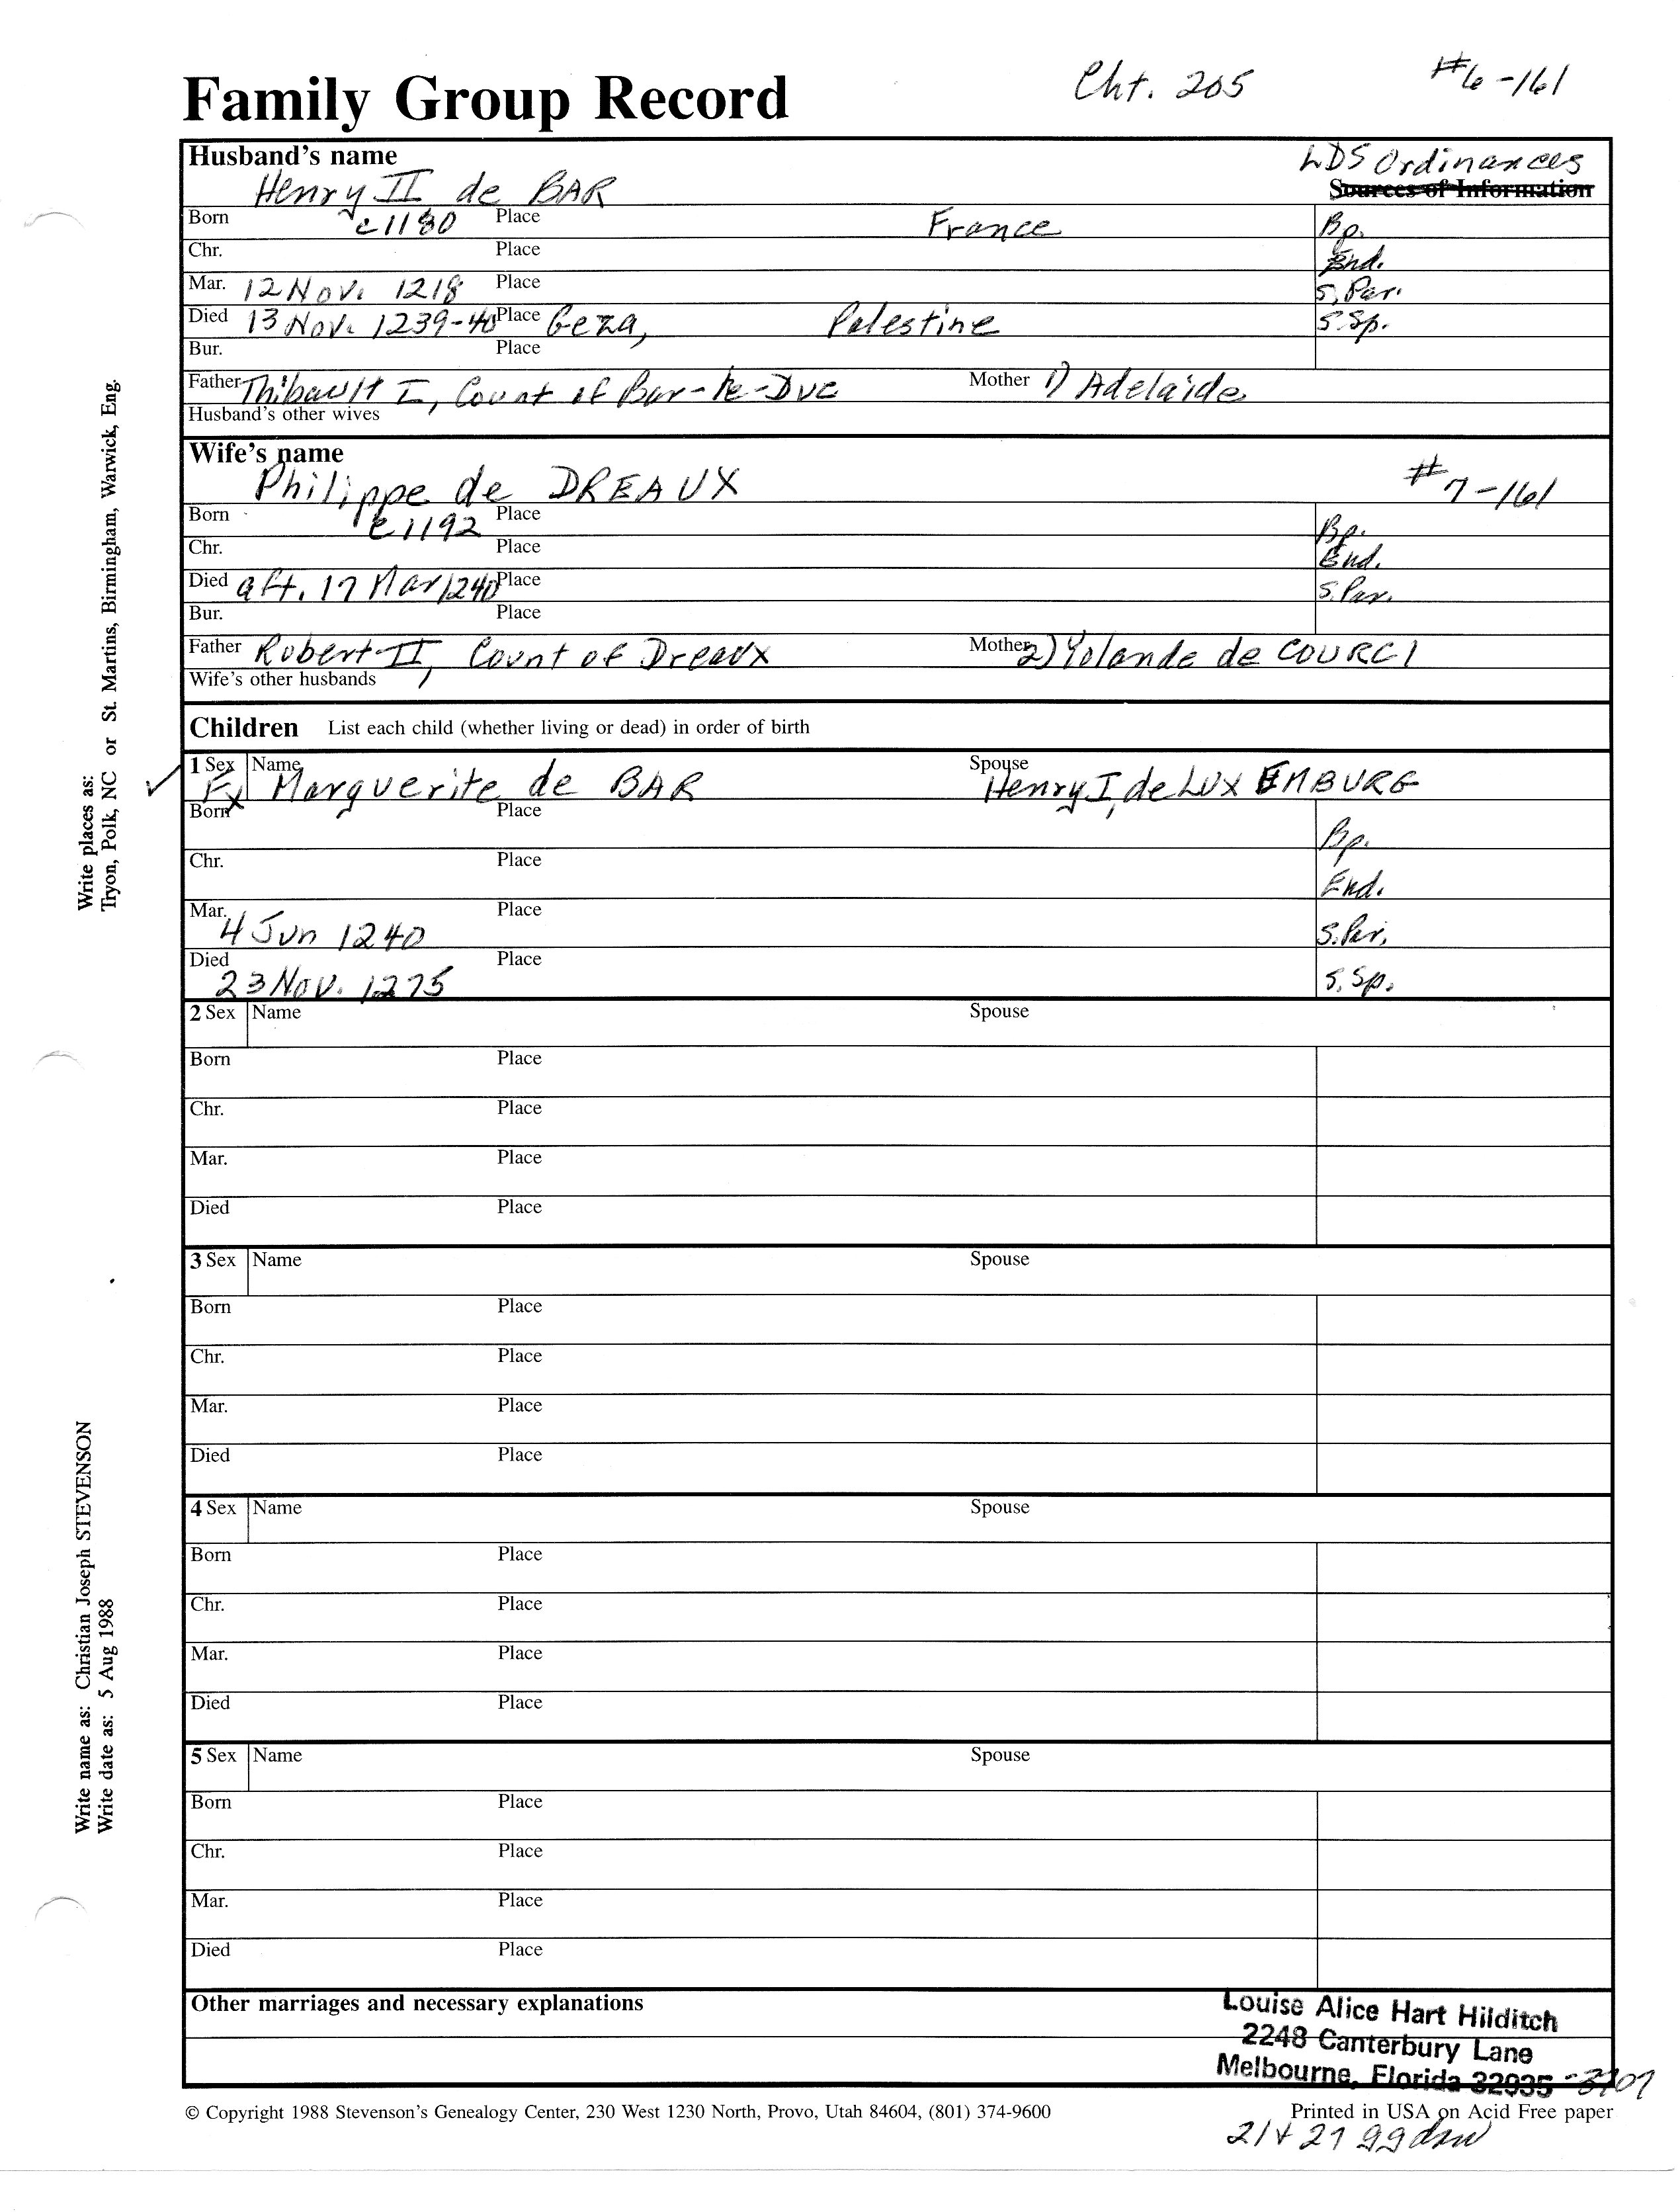 Cht. 205 #6-161
Family Group Record
Husband's name LDS Ordinances
Henry II de BAR Sources of Information
Born c1180 Place France Bp.
Chr. Place End.
Mar. 12 Nov. 1218 Place S. Par.
Died 13 Nov. 1239-40 Place Geza, Palestine S. Sp.
Bur. Place
Father Thibault I, Count of Bar-le-Duc Mother 1) Adelaide
Husband's other wives
Wife's name
Philippe de DREAUX #7-161
Born c1192 Place Bp.
Chr. Place End.
Died aft. 17 Mar 1240 Place S. Par.
Bur. Place
Father Robert II, Count of Dreaux Mother 2) Yolande de COURCI
Wife's other husbands
Children List each child (whether living or dead) in order of birth
1 Sex Name Spouse
F x Marguerite de BAR Henry I, de LUXEMBURG
Born Place Bp.
Chr. Place End.
Mar. 4 Jun 1240 Place S. Par.
Died 23 Nov. 1275 Place S. Sp.
2 Sex Name Spouse
Born Place
Chr. Place
Mar. Place
Died Place
3 Sex Name Spouse
Born Place
Chr. Place
Mar. Place
Died Place
4 Sex Name Spouse
Born Place
Chr. Place
Mar. Place
Died Place
5 Sex Name Spouse
Born Place
Chr. Place
Mar. Place
Died Place
Other marriages and necessary explanations
Louise Alice Hart Hilditch
2248 Canterbury Lane
Melbourne, Florida 32935 -3707
© Copyright 1988 Stevenson's Genealogy Center, 230 West 1230 North, Provo, Utah 84604, (801) 374-9600 Printed in USA on Acid Free paper
21 & 27 gg
Write places as:
Tryon, Polk, NC or St. Martins, Birmingham, Warwick, Eng.
Write name as: Christian Joseph STEVENSON
Write date as: 5 Aug 1988